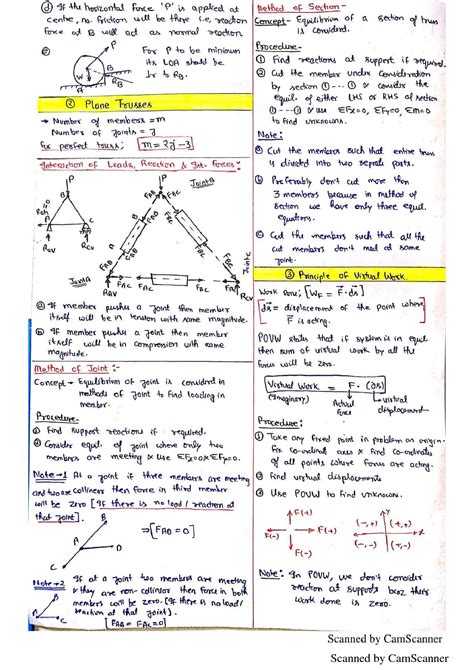 (d) If the horizontal force 'P' is applied at
centre, no friction will be there i.e. reaction
force at B will act as normal reaction
(e)
For P to be minimum
its LOA should be
⊥r to RB.
P
W
A
B
RB
② Plane Trusses
→ Number of members = m
Number of joints = j
for perfect truss; m = 2j - 3
Interaction of Loads, Reaction & Int. Forces:
P
A
B
C
RBV
RCV
P
Joint A
FAB
FAC
FAB
FAC
FAB
FAC
FBC
FBC
RCV
(a) If member pushes a joint then member
itself will be in tension with same magnitude.
(b) If member pushes a joint then member
itself will be in compression with same
magnitude.
Method of Joint :-
Concept - Equilibrium of joint is considered in
methods of joint to find loading in
member.
Procedure-
① Find support reactions if required.
② Consider equil. of joint where only two
members are meeting & use ΣFx=0 & ΣFy=0.
Note-1 At a joint if three members are meeting
and two are collinear then force in third member
will be zero [If there is no load / reaction at
that joint].
A
B
C
D
⇒ [FAD = 0]
Note-2 If at a joint two members are meeting
& they are non-collinear then force in both
members will be zero. (If there is no load /
reaction at that joint).
A
B
C
[FAB = FAC = 0]
Method of Section -
Concept- Equilibrium of a section of truss
is considered.
Procedure-
① Find reactions at support if required.
② Cut the member under consideration
by section ①---① & consider the
equil. of either LHS or RHS of section
①---① & use ΣFx=0, ΣFy=0, Σm=0
to find unknowns.
Note:
(a) Cut the members such that entire truss
is divided into two separate parts.
(b) Preferably don't cut more than
3 members because in method of
section we have only three equil.
equations.
(c) Cut the members such that all the
cut members don't meet at same
joint.
③ Principle of Virtual Work
Work done; [WF = F.ds]
ds = displacement of the point where
F is acting.
POVW states that if system is in equil
then sum of virtual work by all the
forces will be zero.
Virtual Work = F . (∂s)
(Imaginary)
Actual
force
virtual
displacement
Procedure:
① Take any fixed point in problem as origin
for co-ordinate axis & find co-ordinates
of all points where forces are acting.
② find virtual displacements
③ Use POVW to find unknowns.
F(+)
F(-)
F(+)
F(-)
Y
X
(-,+)
(+,+)
(-,-)
(+,-)
Note: In POVW, we don't consider
reaction at supports bcoz their
work done is zero.
Scanned by CamScanner
Scanned by CamScanner